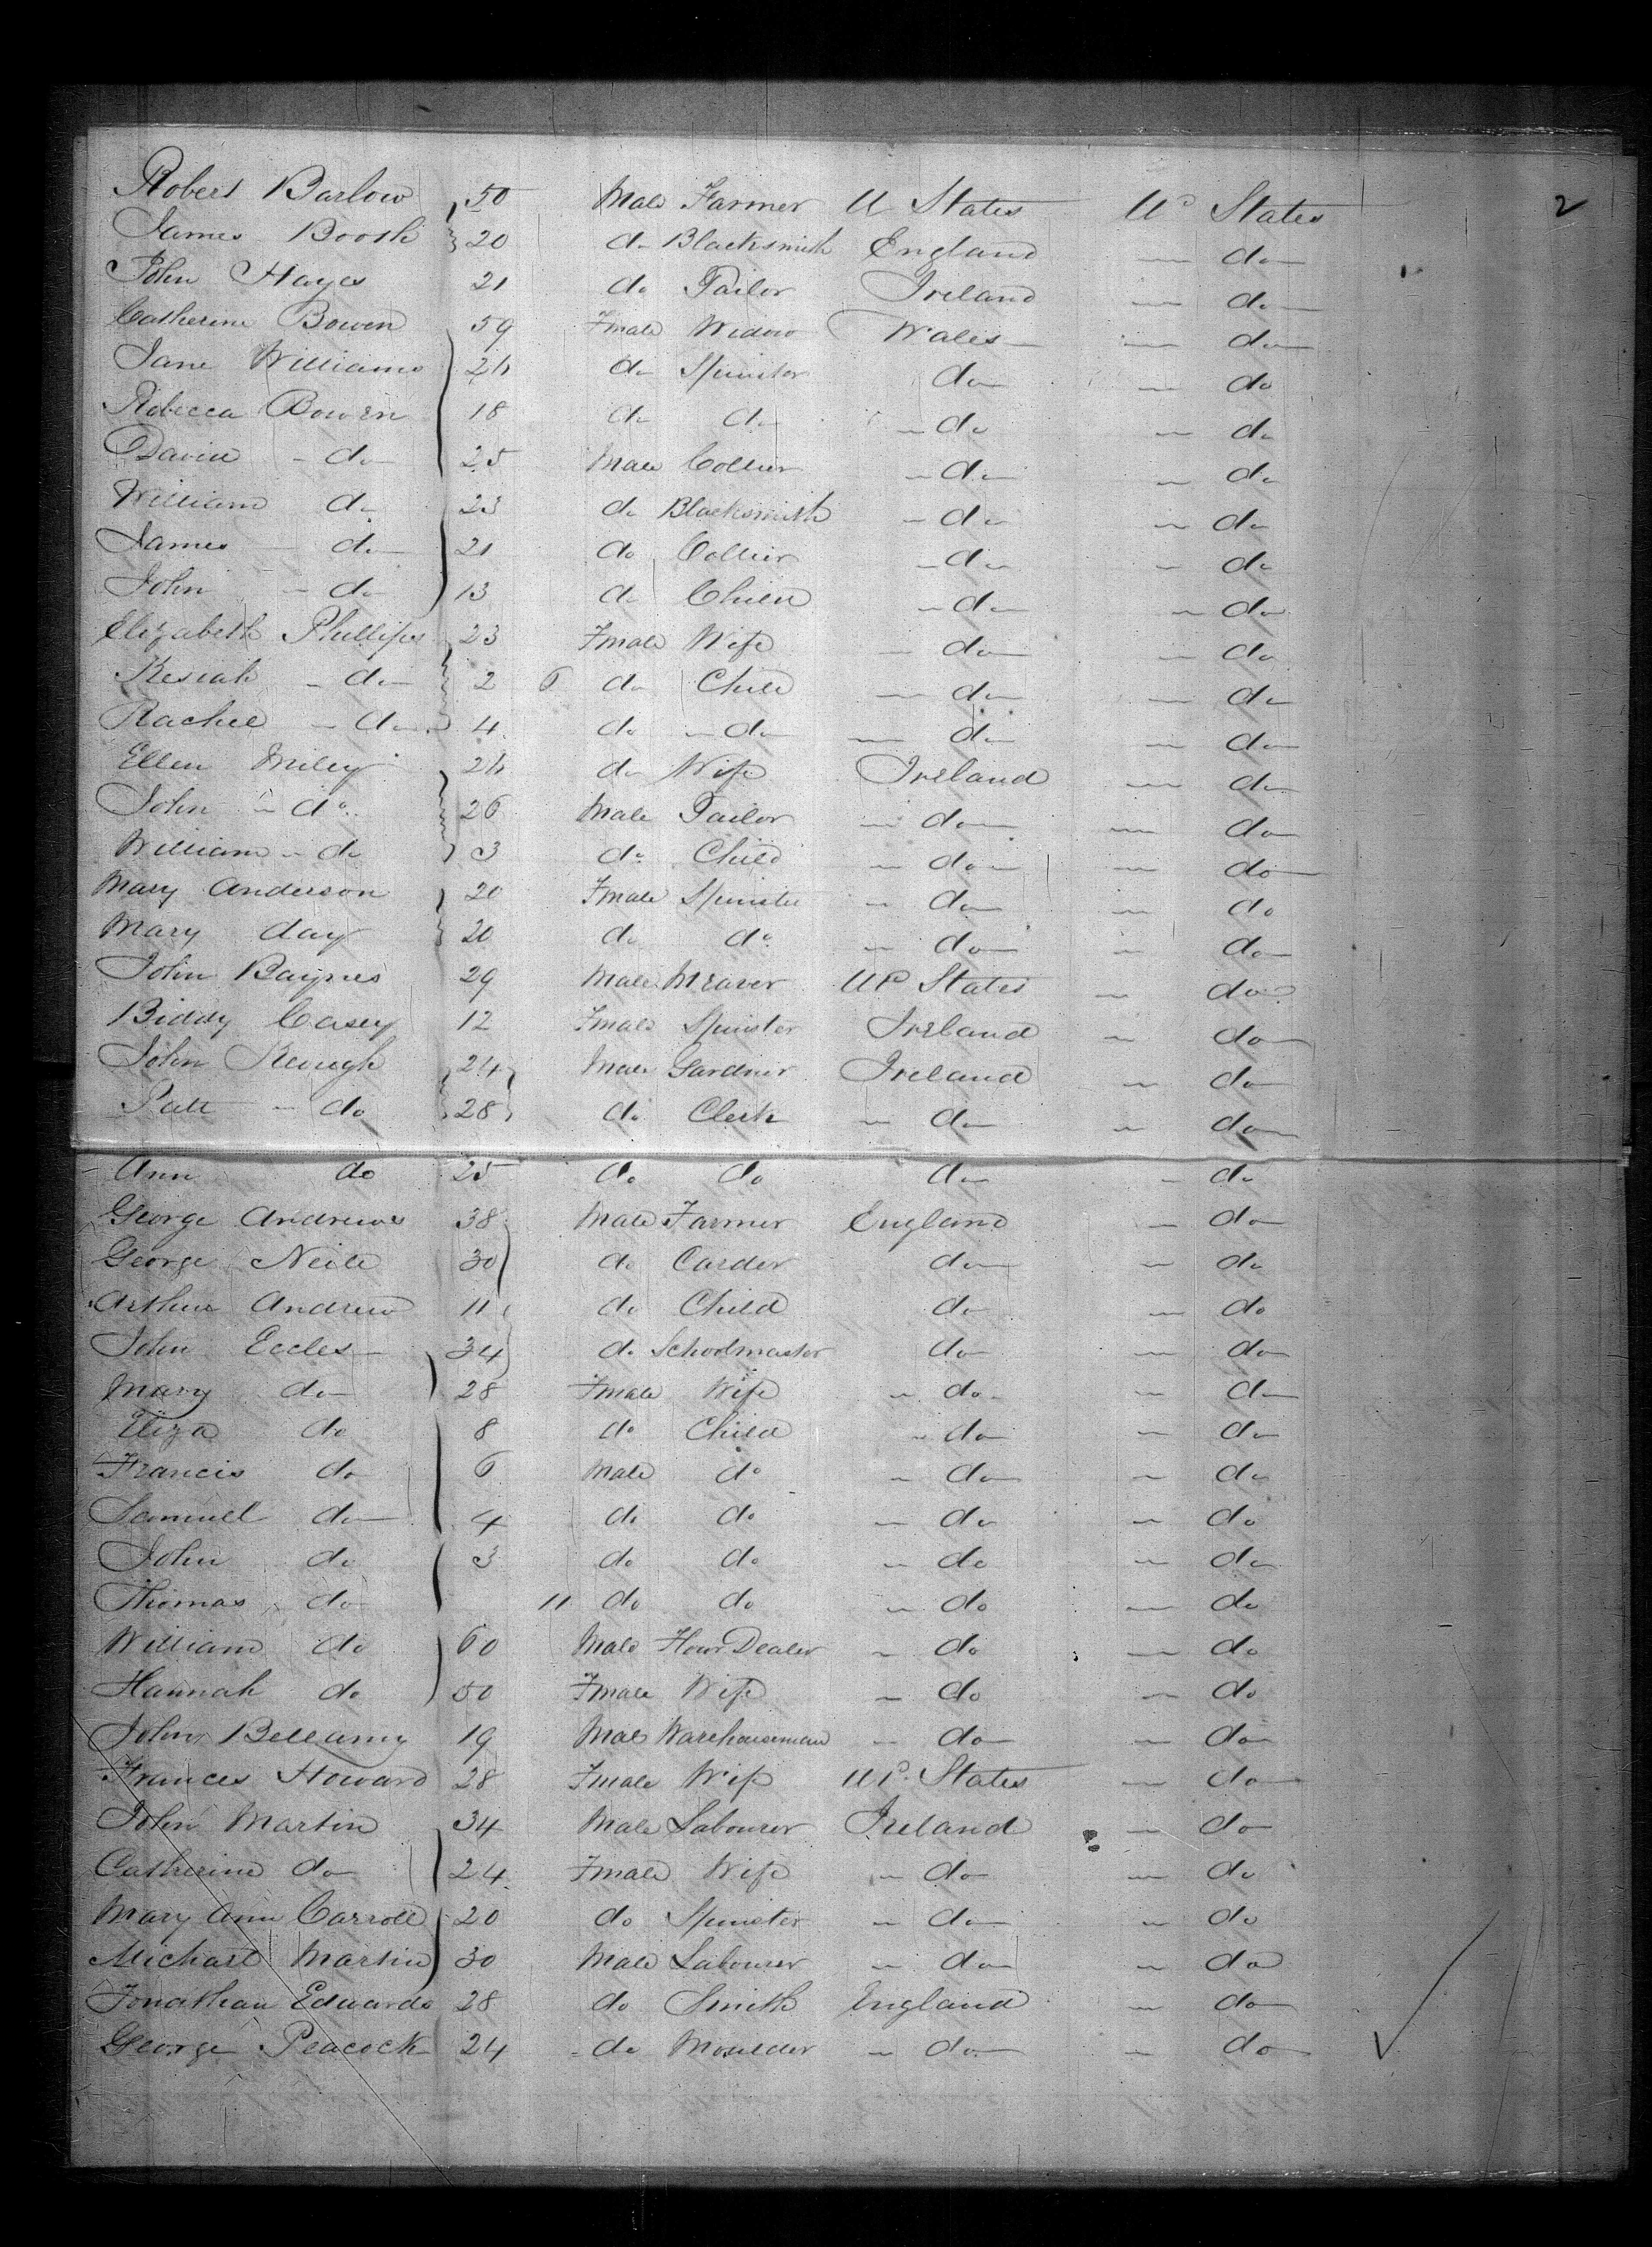 2
Robert Barlow 50 Male Farmer U States Ud States
James Booth 20 do Blacksmith England do
John Hayes 21 do Tailor Ireland do
Catherine Bowen 59 Fmale Widow Wales do
Jane Williams 24 do Spinster do do
Rebecca Bowen 18 do do do do
David do 25 Male Collier do do
William do 23 do Blacksmith do do
James do 21 do Collier do do
John do 13 do Child do do
Elizabeth Phillips 23 Fmale Wife do do
Kesiah do 2 6 do Child do do
Rachel do 4 do do do do
Ellen Miley 24 do Wife Ireland do
John do 26 Male Tailor do do
William do 3 do Child do do
Mary Anderson 20 Fmale Spinster do do
Mary day 20 do do do do
John Baynes 29 Male Weaver Ud States do
Biddy Casey 12 Fmale Spinster Ireland do
John Keough 24 Male Gardner Ireland do
Patt do 28 do Clerk do do
Ann do 25 do do do do
George Andrews 38 Male Farmer England do
George Neild 30 do Carder do do
Arthur Andrew 11 do Child do do
John Eccles 34 do Schoolmaster do do
Mary do 28 Fmale Wife do do
Eliza do 8 do Child do do
Francis do 6 Male do do do
Samuel do 4 do do do do
John do 3 do do do do
Thomas do 11 do do do do
William do 60 Male Flour Dealer do do
Hannah do 50 Fmale Wife do do
John Bellamy 19 Male Warehouseman do do
Frances Howard 28 Fmale Wife Ud States do
John Martin 34 Male Labourer Ireland do
Catherine do 24 Fmale Wife do do
Mary Ann Carroll 20 do Spinster do do
Michael Martin 30 Male Labourer do do
Jonathan Edwards 28 do Smith England do
George Peacock 24 do Moulder do do